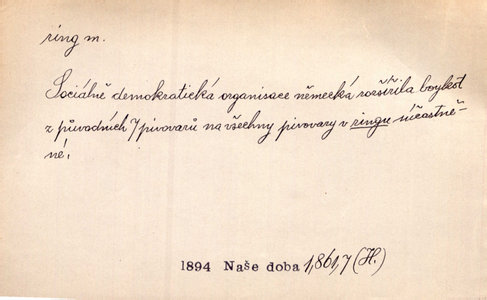 ring m.
Sociálně demokratická organisace německá rozšířila boykot
z původních 7 pivovarů na všechny pivovary v ringu účastně-
né!
1894 Naše doba 1,861,7 (H.)